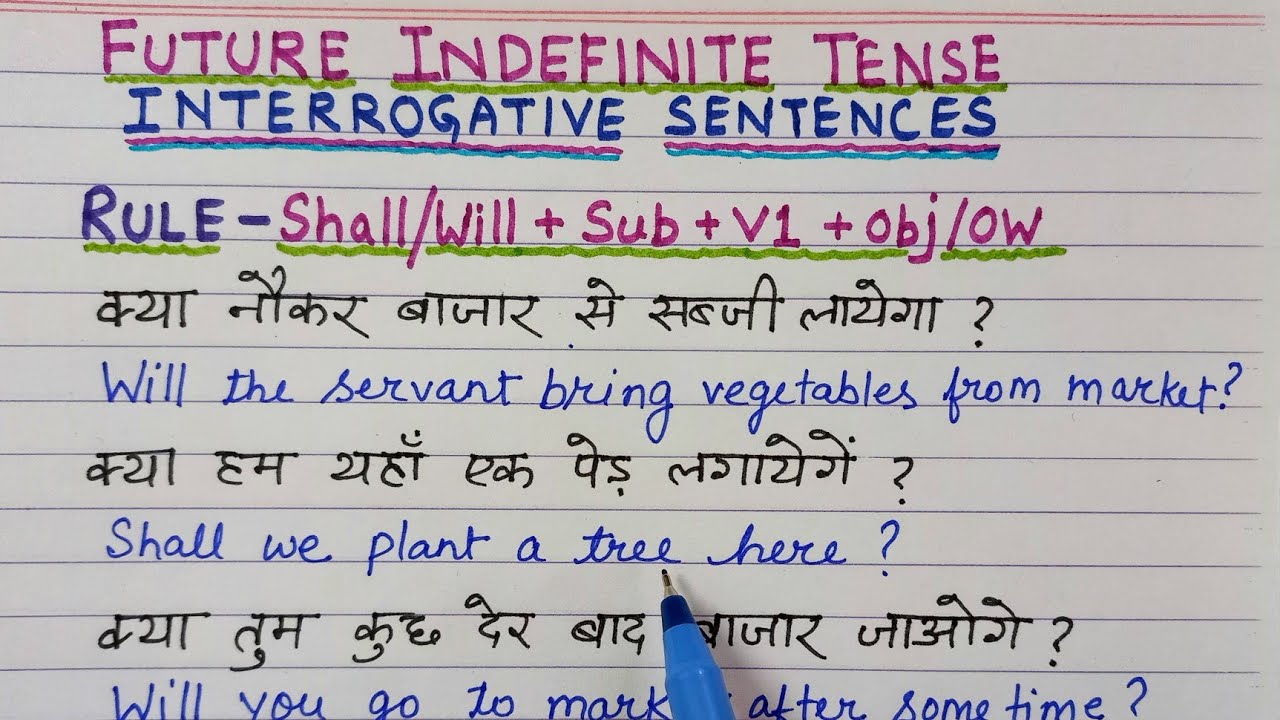 FUTURE INDEFINITE TENSE
INTERROGATIVE SENTENCES
RULE - Shall/Will + Sub + V1 + Obj/OW
क्या नौकर बाजार से सब्जी लायेगा ?
Will the servant bring vegetables from market?
क्या हम यहाँ एक पेड़ लगायेगें ?
Shall we plant a tree here ?
क्या तुम कुछ देर बाद बाजार जाओगे ?
Will you go to after some time ?